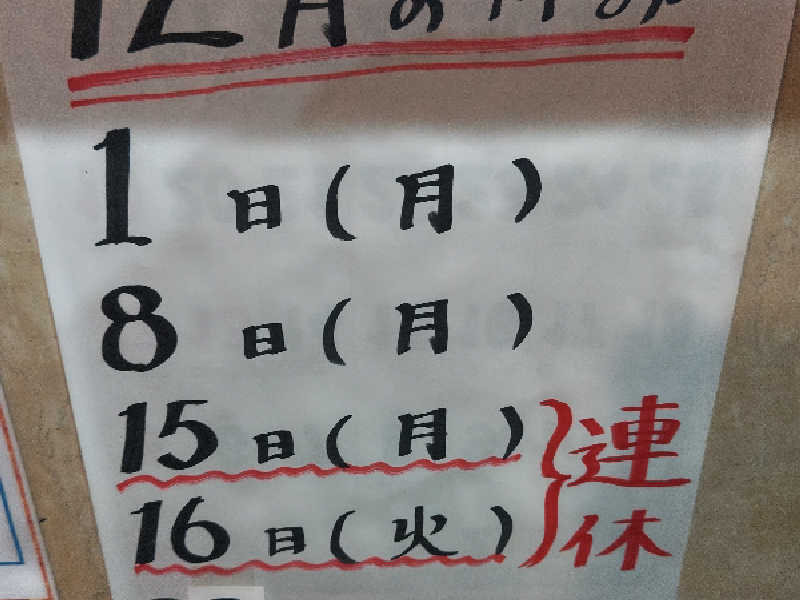 12月お休み
1日(月)
8日(月)
15日(月)
16日(火)
連休